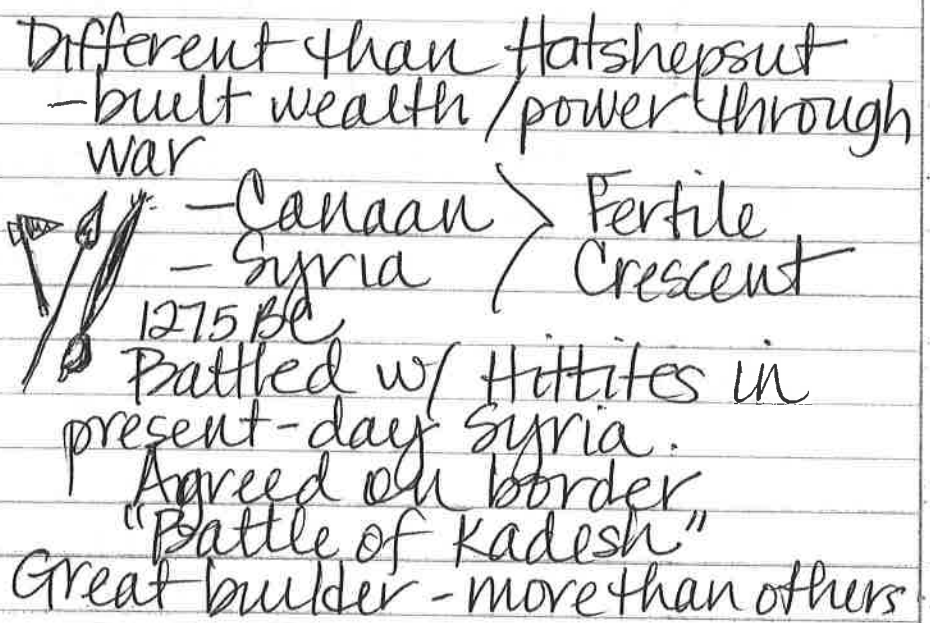 Different than Hatshepsut
-built wealth/power through
war
-Canaan > Fertile
-Syria Crescent
1275 BC
Battled w/ Hittites in
present-day Syria.
Agreed on border
"Battle of Kadesh"
Great builder - more than others